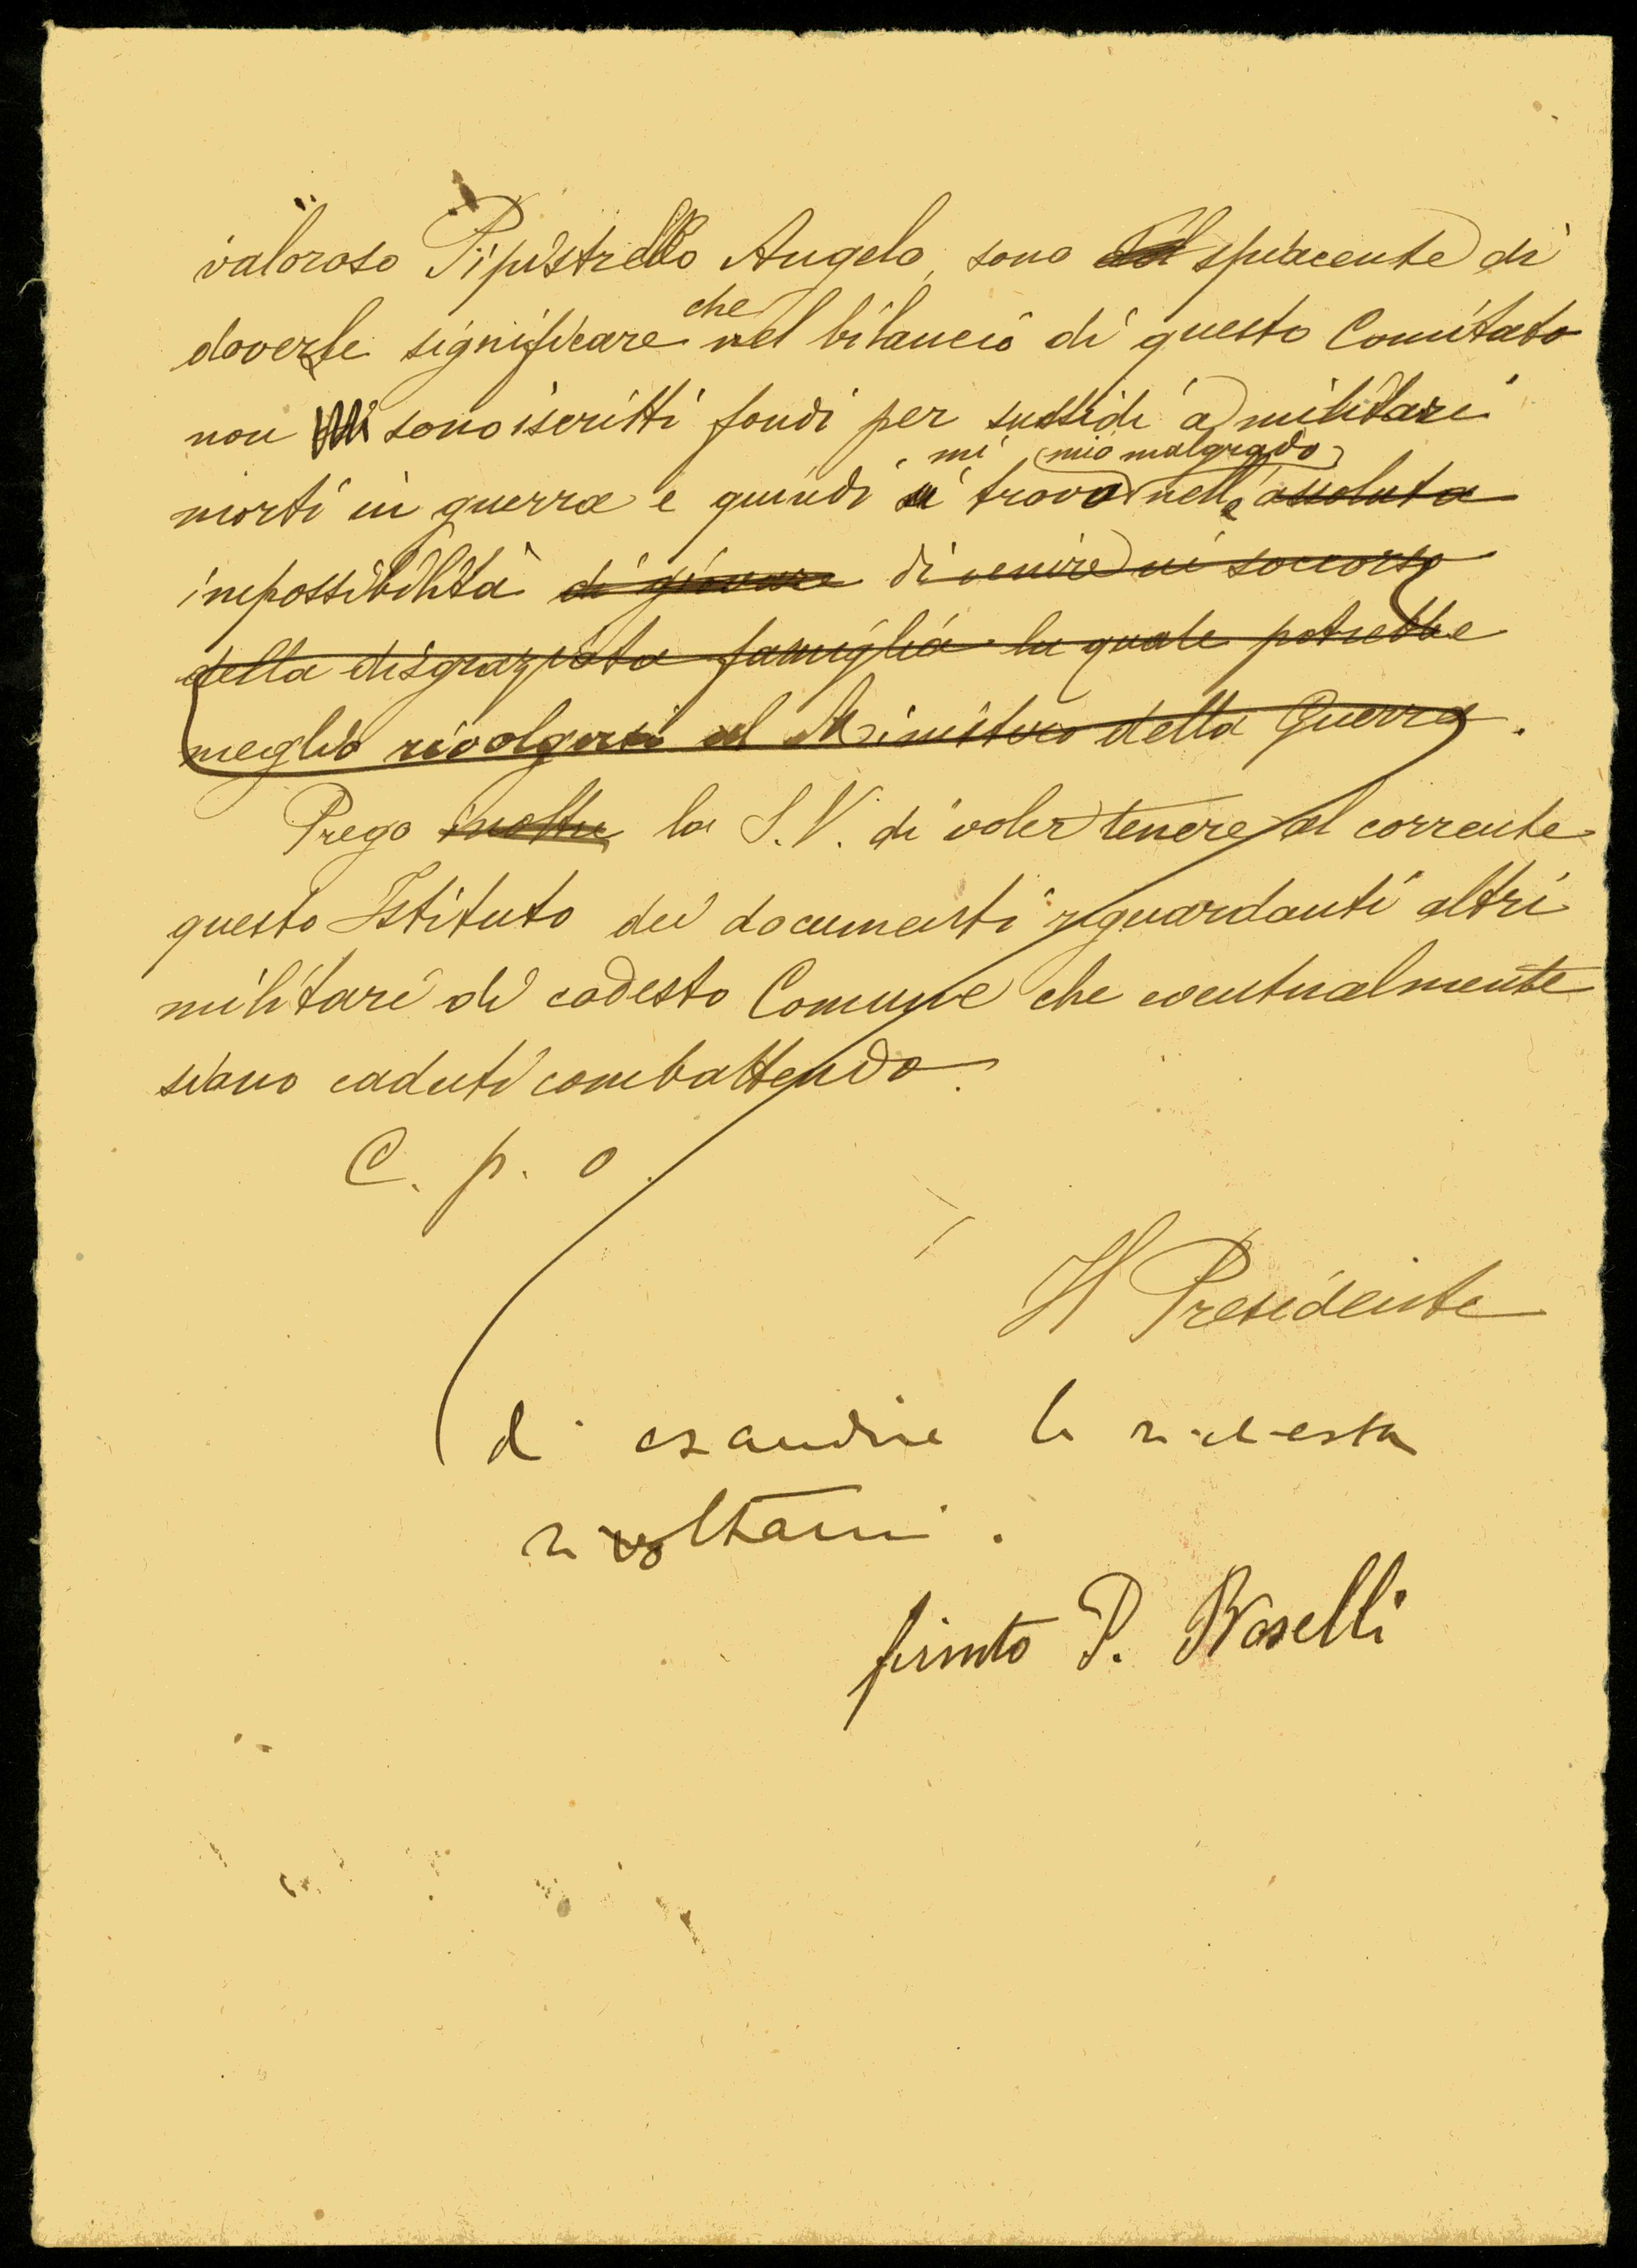 valoroso Pipistrello Angelo, sono spiacente di
doverle significare che nel bilancio di questo Comitato
non sono iscritti fondi per sussidi a militari
mi mio malgrado
morti in guerra e quindi si trovo nelle assoluta
impossibilità di giovare di venire in soccorso
della disgraziata famiglia la quale potrebbe
meglio rivolgersi al Ministero della Guerra.
Prego inoltre la S.V. di voler tenere al corrente
questo Istituto dei documenti riguardanti altri
militari di codesto Comune che eventualmente
siano caduti combattendo.
C. p. o.
Il Presidente
di esaudire la richiesta
rivoltami.
firmto P. Boselli